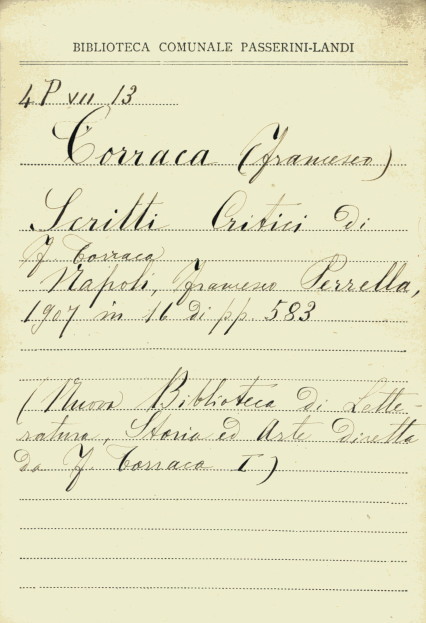 BIBLIOTECA COMUNALE PASSERINI-LANDI
4 P VII 13
Torraca (Francesco)
Scritti Critici di
F. Torraca
Napoli, Francesco Perrella,
1907 in 16 di pp. 583
(Nuova Biblioteca di Lette
ratura, Storia ed Arte diretta
da F. Torraca I)